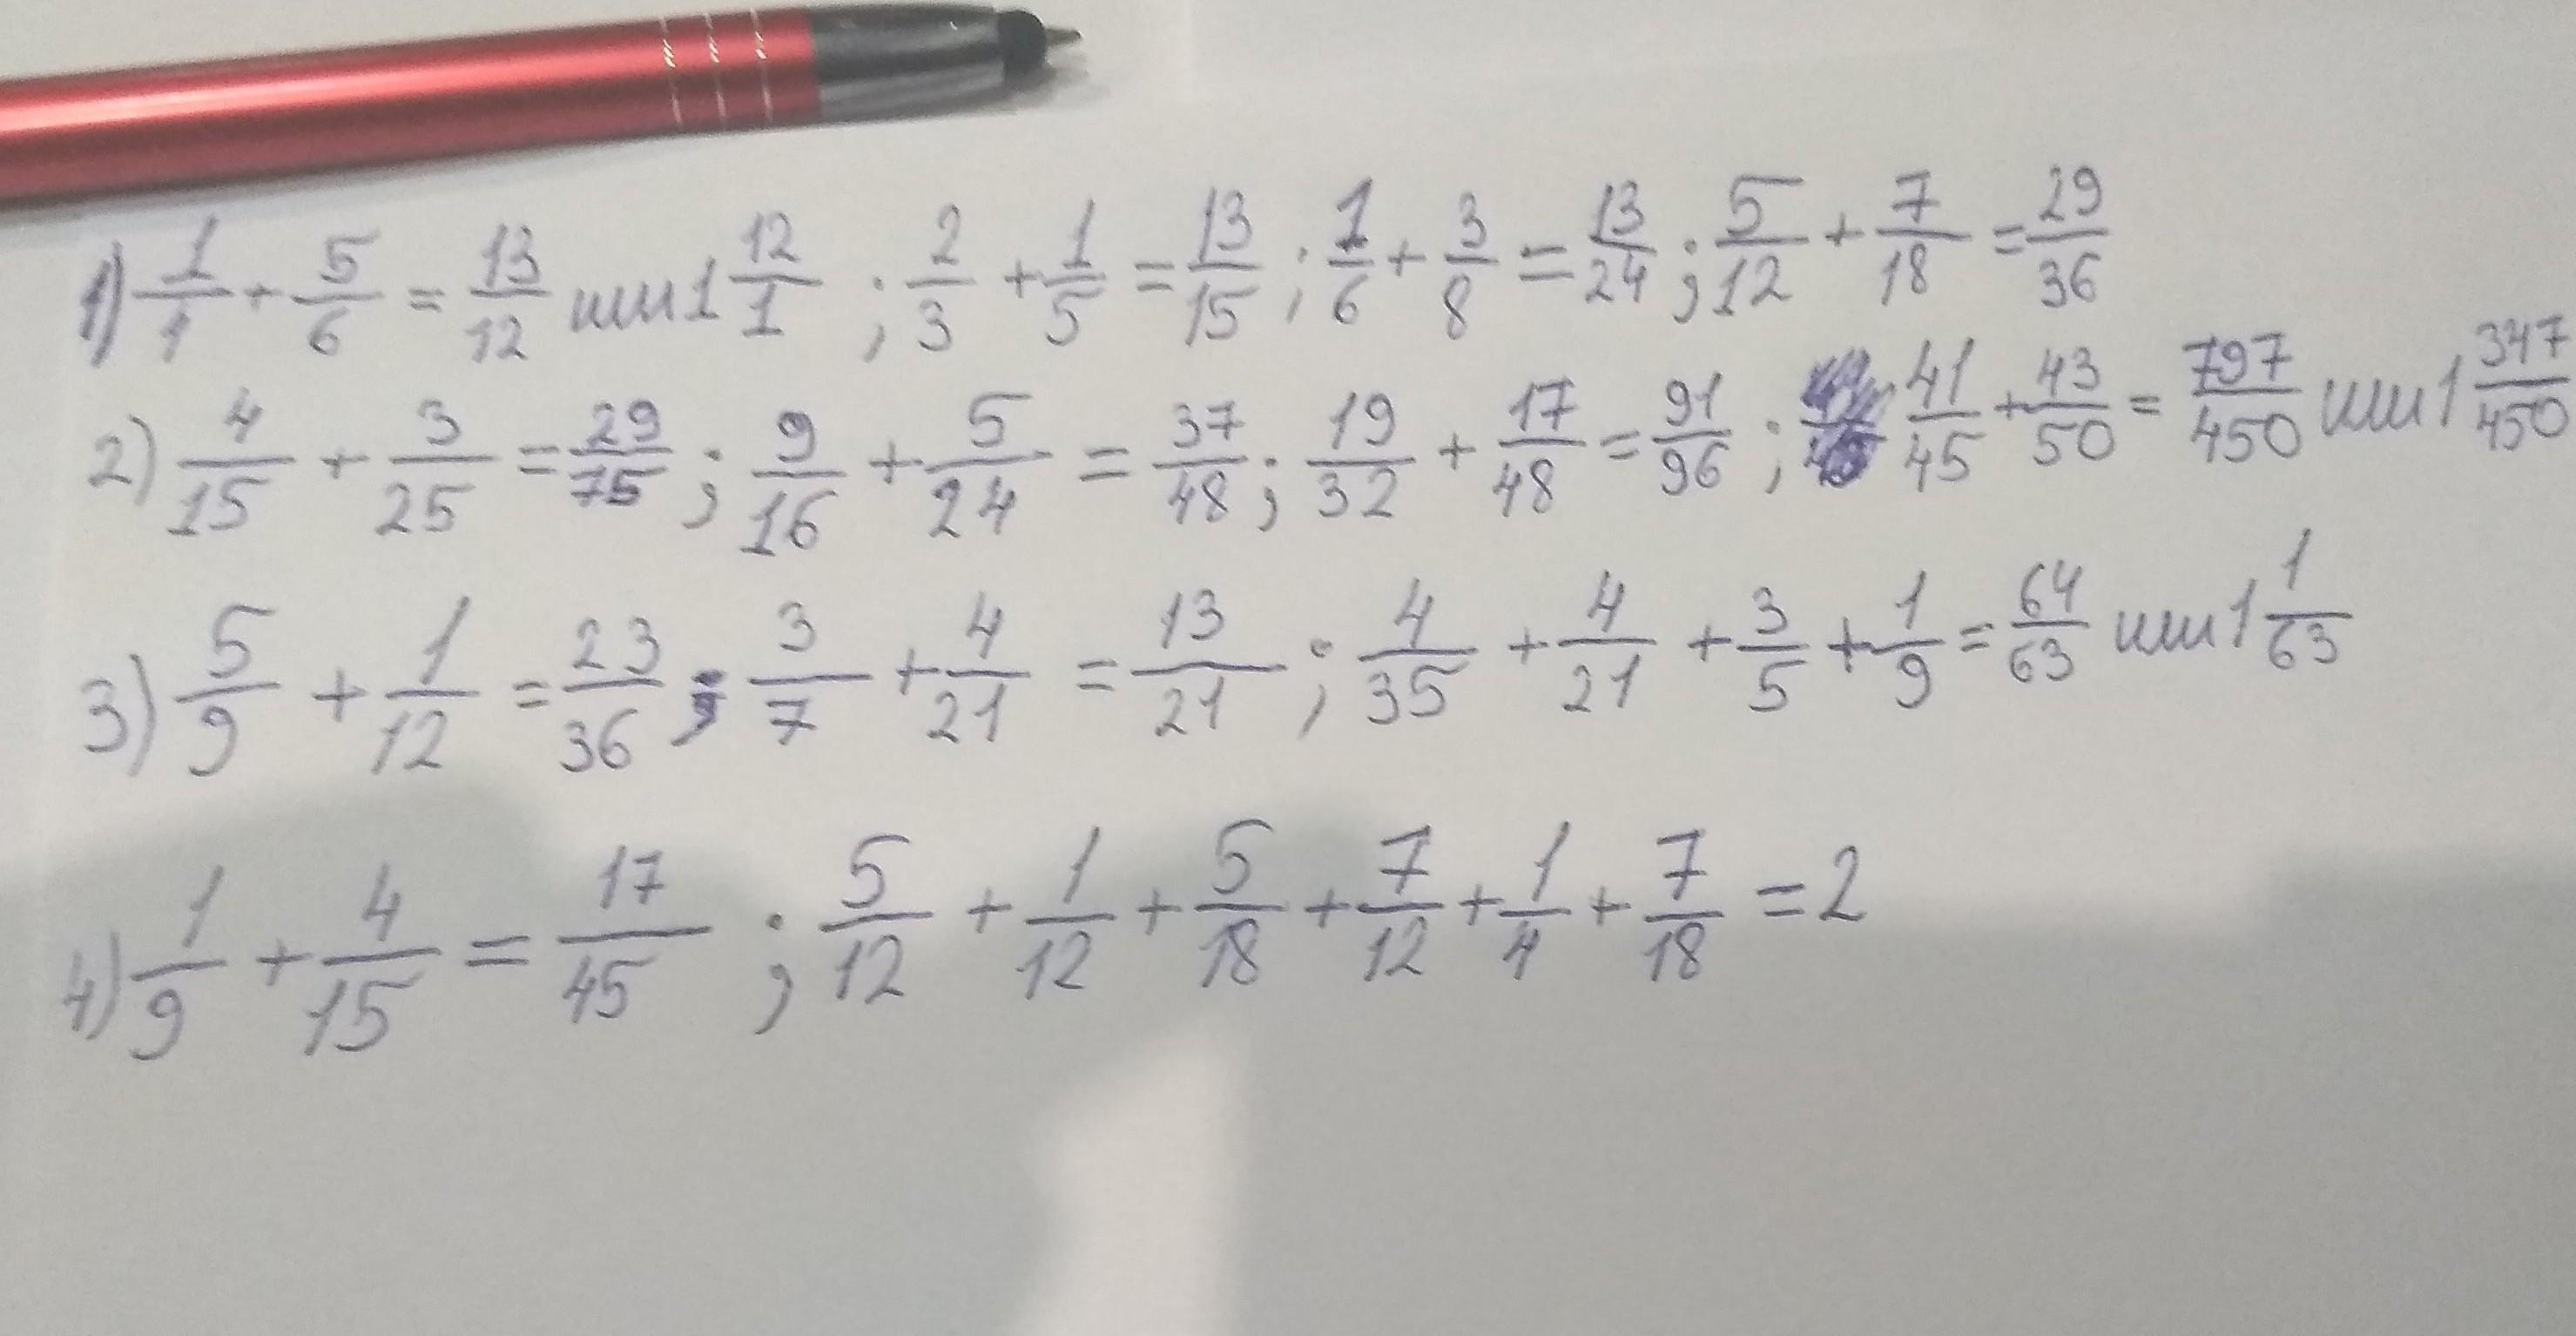 1) 1/1 + 5/6 = 13/12 или 1 12/1 ; 2/3 + 1/5 = 13/15 ; 1/6 + 3/8 = 13/24 ; 5/12 + 7/18 = 29/36
2) 4/15 + 3/25 = 29/75 ; 9/16 + 5/24 = 37/48 ; 19/32 + 17/48 = 91/96 ; 41/45 + 43/50 = 797/450 или 1 347/450
3) 5/9 + 1/12 = 23/36 ; 3/7 + 4/21 = 13/21 ; 4/35 + 4/21 + 3/5 + 1/9 = 64/63 или 1 1/63
4) 1/9 + 4/15 = 17/45 ; 5/12 + 1/12 + 5/18 + 7/12 + 1/4 + 7/18 = 2